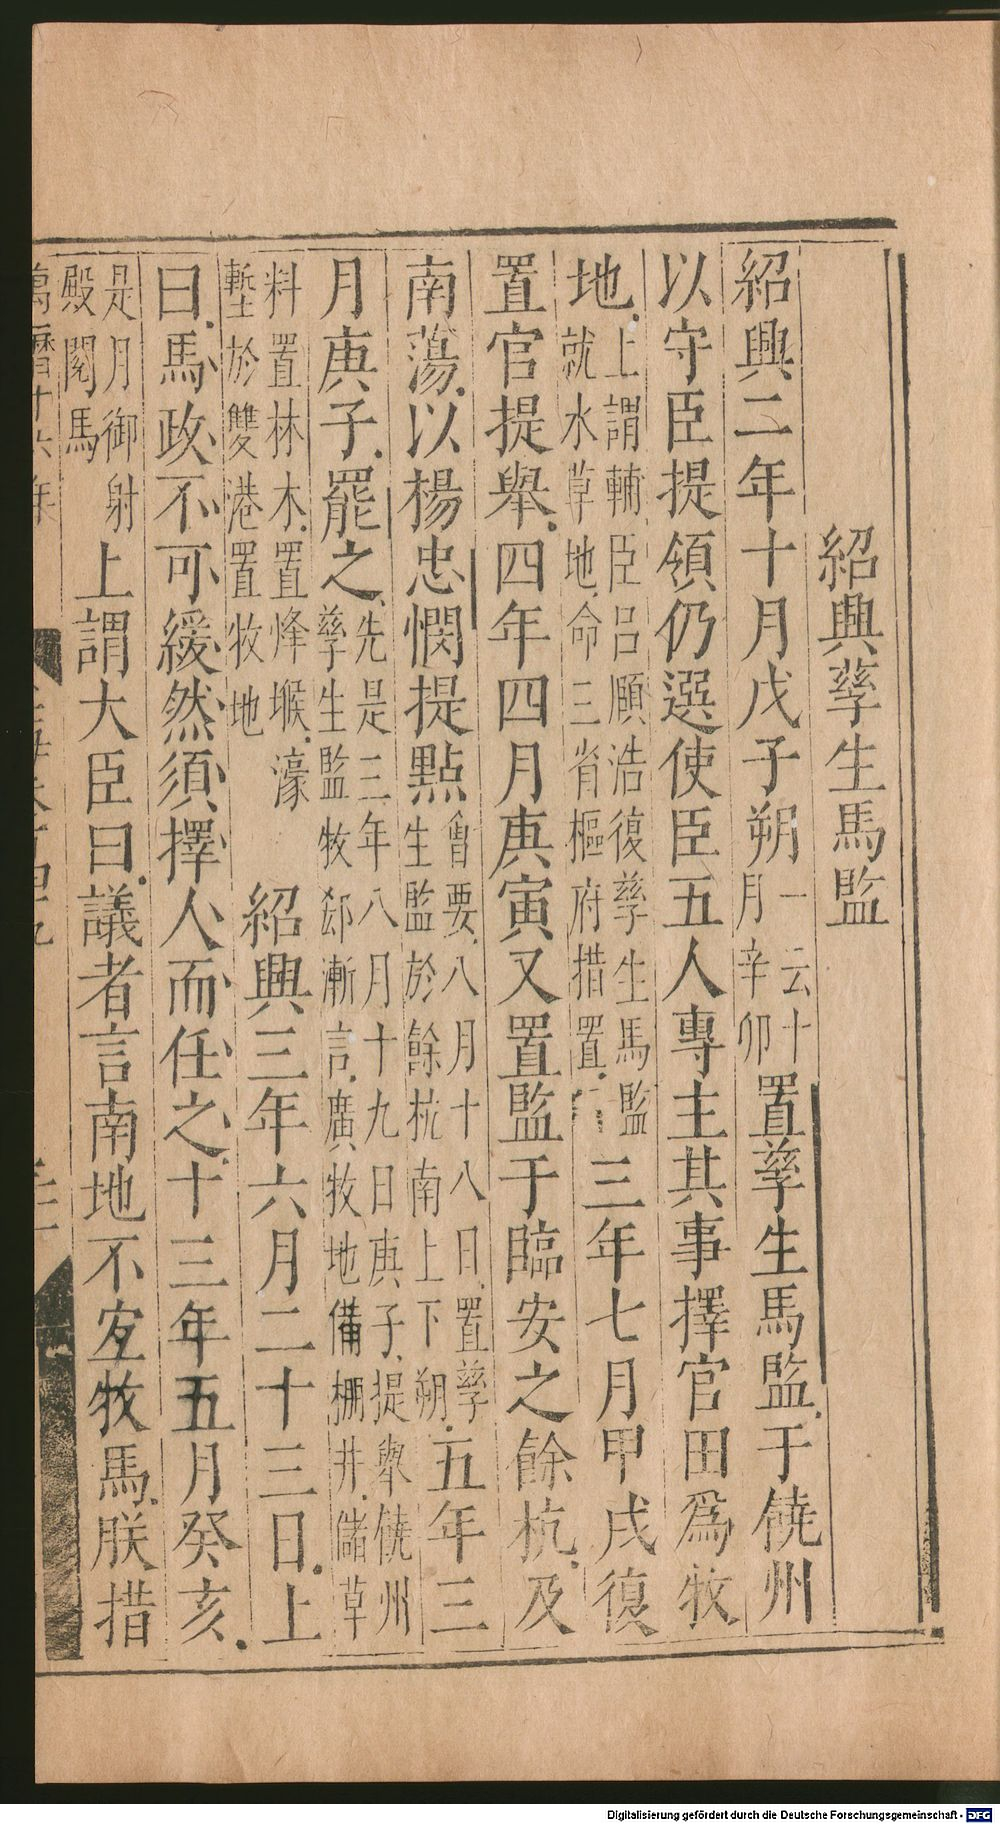 紹興孳生馬監
紹興二年十月戊子朔一云十月辛卯置孳生馬監于饒州
以守臣提領仍選使臣五人專主其事擇官田爲牧
地上謂輔臣呂頤浩復孳生馬監就水草地命三省樞府措置三年七月甲戌復
置官提舉四年四月庚寅又置監于臨安之餘杭及
南蕩以楊忠憫提點會要八月十八日置孳生監於餘杭南上下朔五年三
月庚子罷之先是三年八月十九日庚子提舉饒州孳生監牧郄漸言廣牧地備棚井儲草
料置林木置烽堠濠塹於雙港置牧地紹興三年六月二十三日上
曰馬政不可緩然須擇人而任之十三年五月癸亥
是月御射殿閱馬上謂大臣曰議者言南地不宜牧馬朕措
萬曆十六年
Digitalisierung gefördert durch die Deutsche Forschungsgemeinschaft - DFG